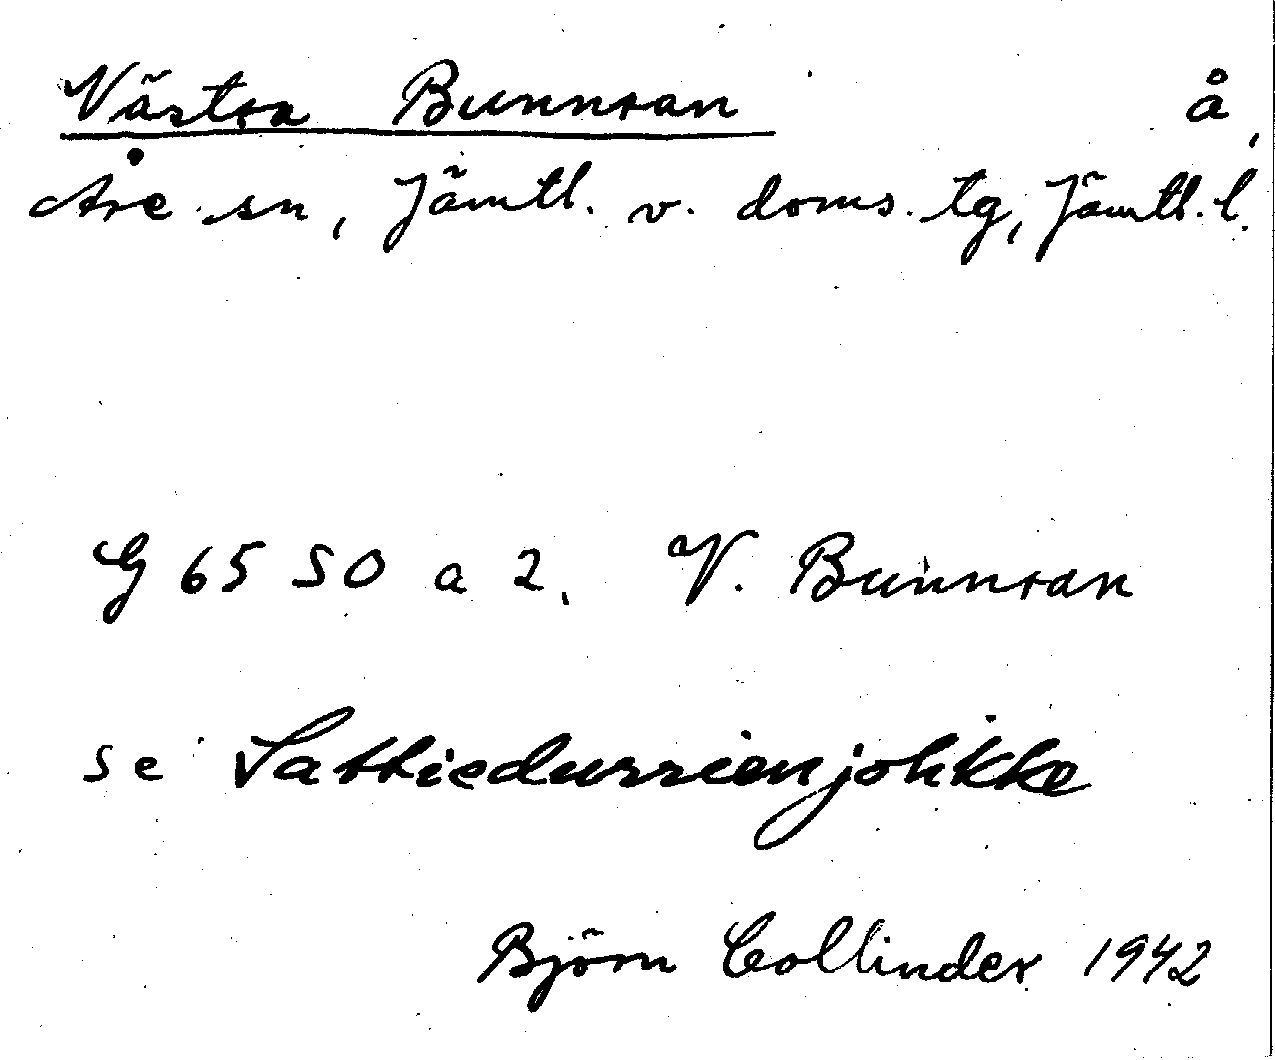 Västra Bunnran å,
Åre sn, Jämtl. v. doms. tg, Jämtl. l.
G 65 50 a 2. V. Bunnran
se Sattiedurrienjohkke
Björn Collinder 1942